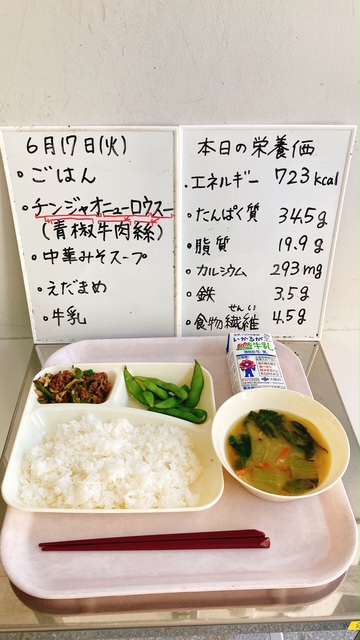 6月17日(火)
・ごはん
・チンジャオニューロウスー
(青椒牛肉絲)
・中華みそスープ
・えだまめ
・牛乳
本日の栄養価
・エネルギー 723kcal
・たんぱく質 34.5g
・脂質 19.9g
・カルシウム 293mg
・鉄 3.5g
せんい
・食物繊維 4.5g
いかるが
牛乳